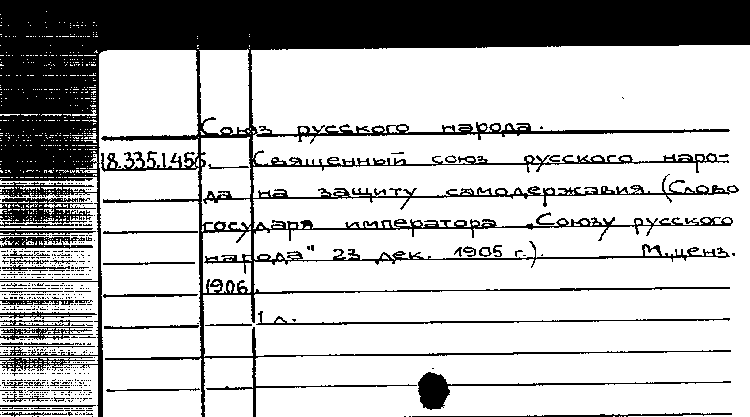 Союз русского народа.
18.335.1.456. Священный союз русского наро-
да на защиту самодержавия. (Слово
государя императора „Союзу русского
народа" 23 дек. 1905 г.). М., ценз.
1906.
1 л.